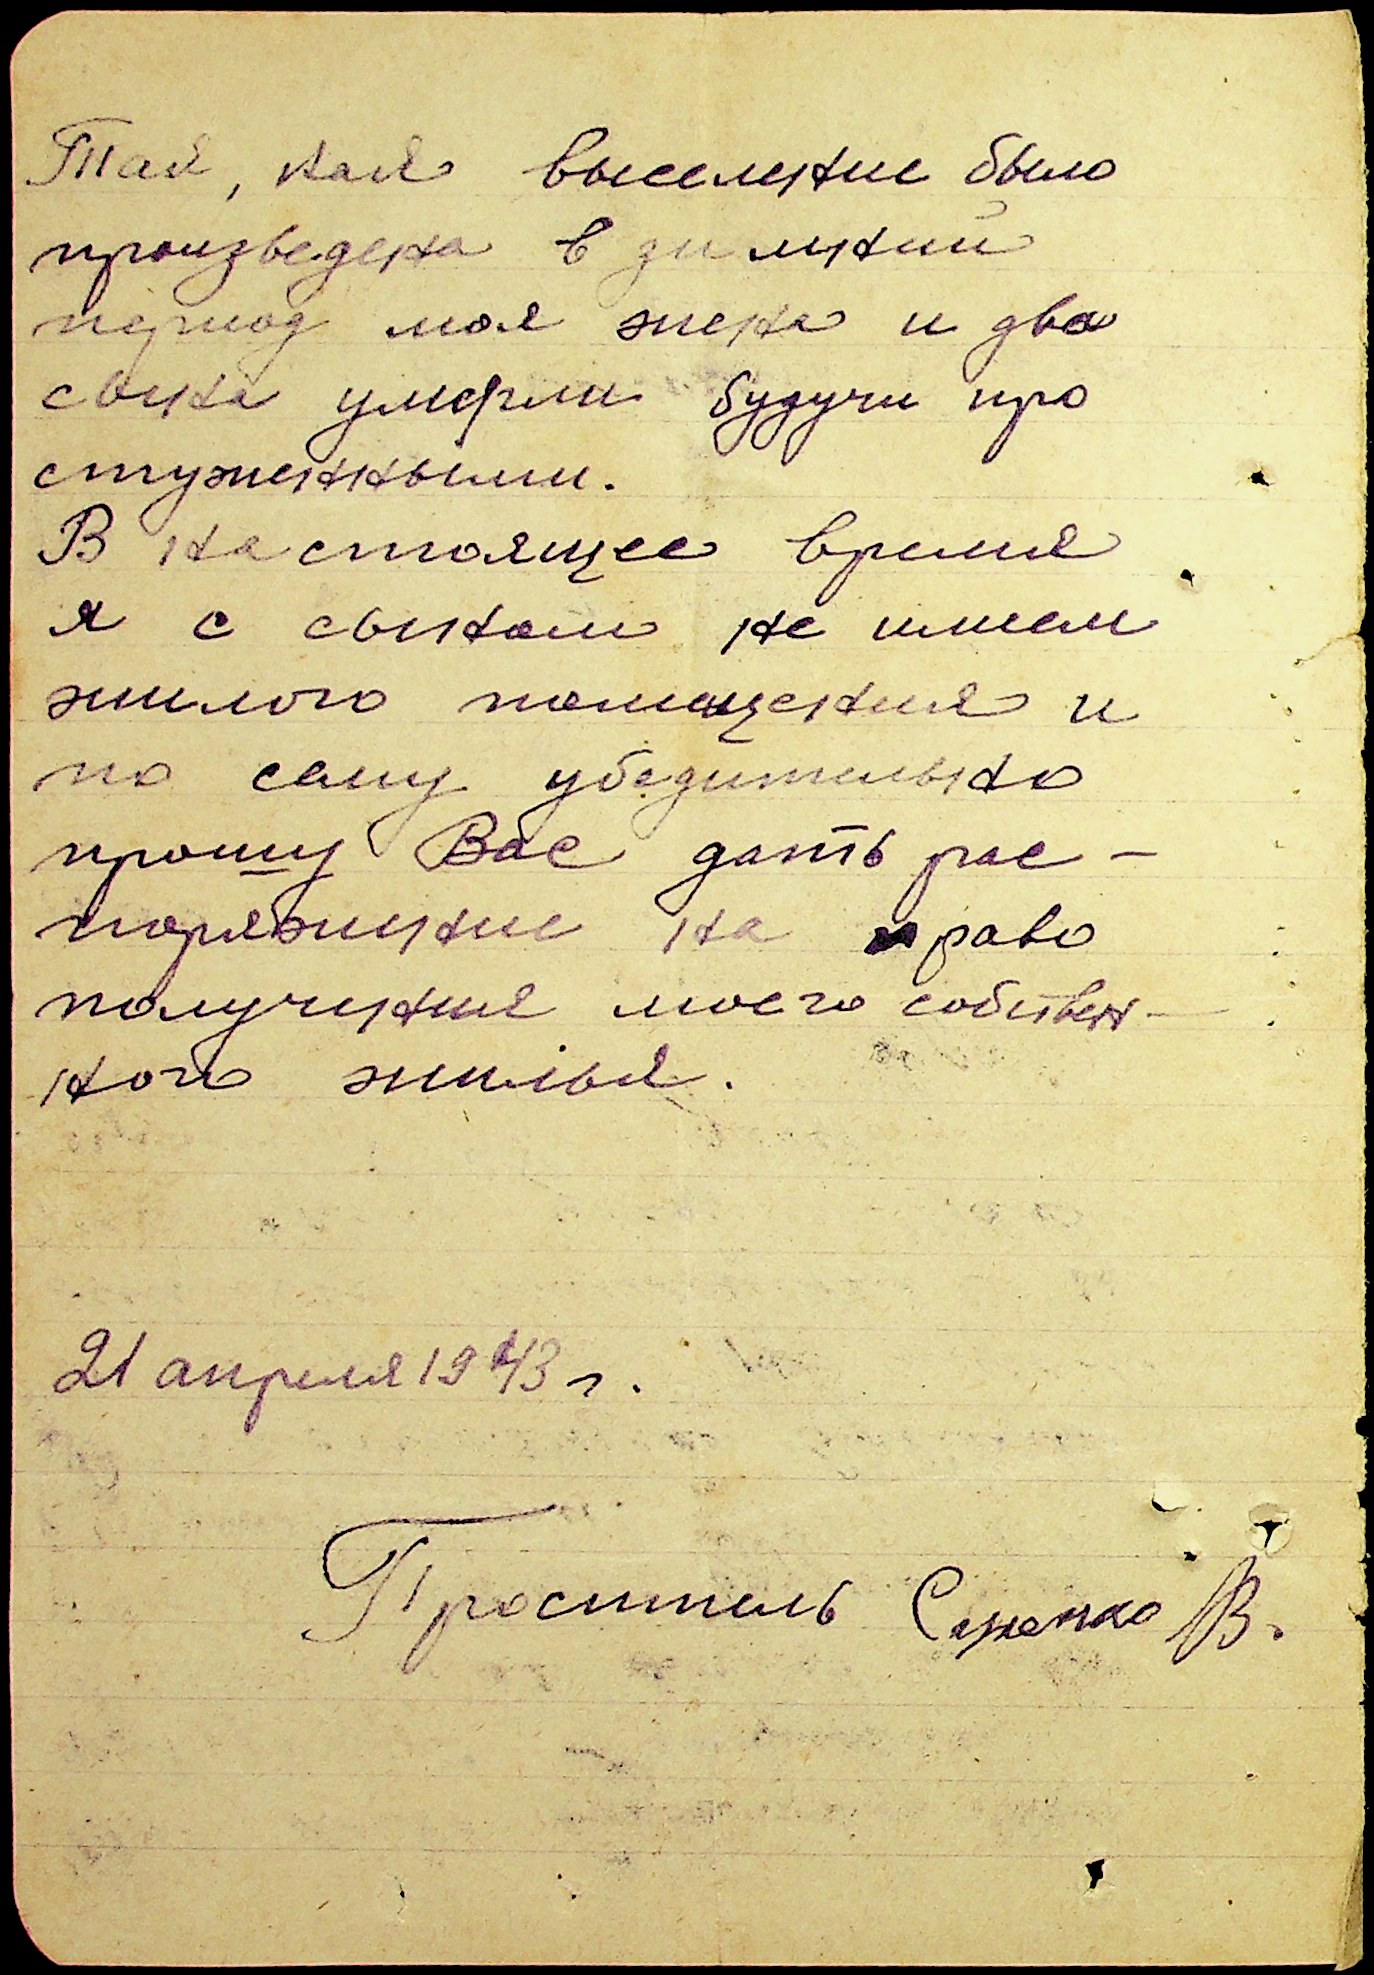 Так, как выселение было
произведено в зимний
период моя жена и два
сына умерли будучи про
стуженными.
В настоящее время
я с сыном не имеем
жилого помещения и
по сему убедительно
прошу Вас дать рас-
поряжение на право
получения моего собствен-
ного жилья.
21 апреля 1943 г.
Проситель В.